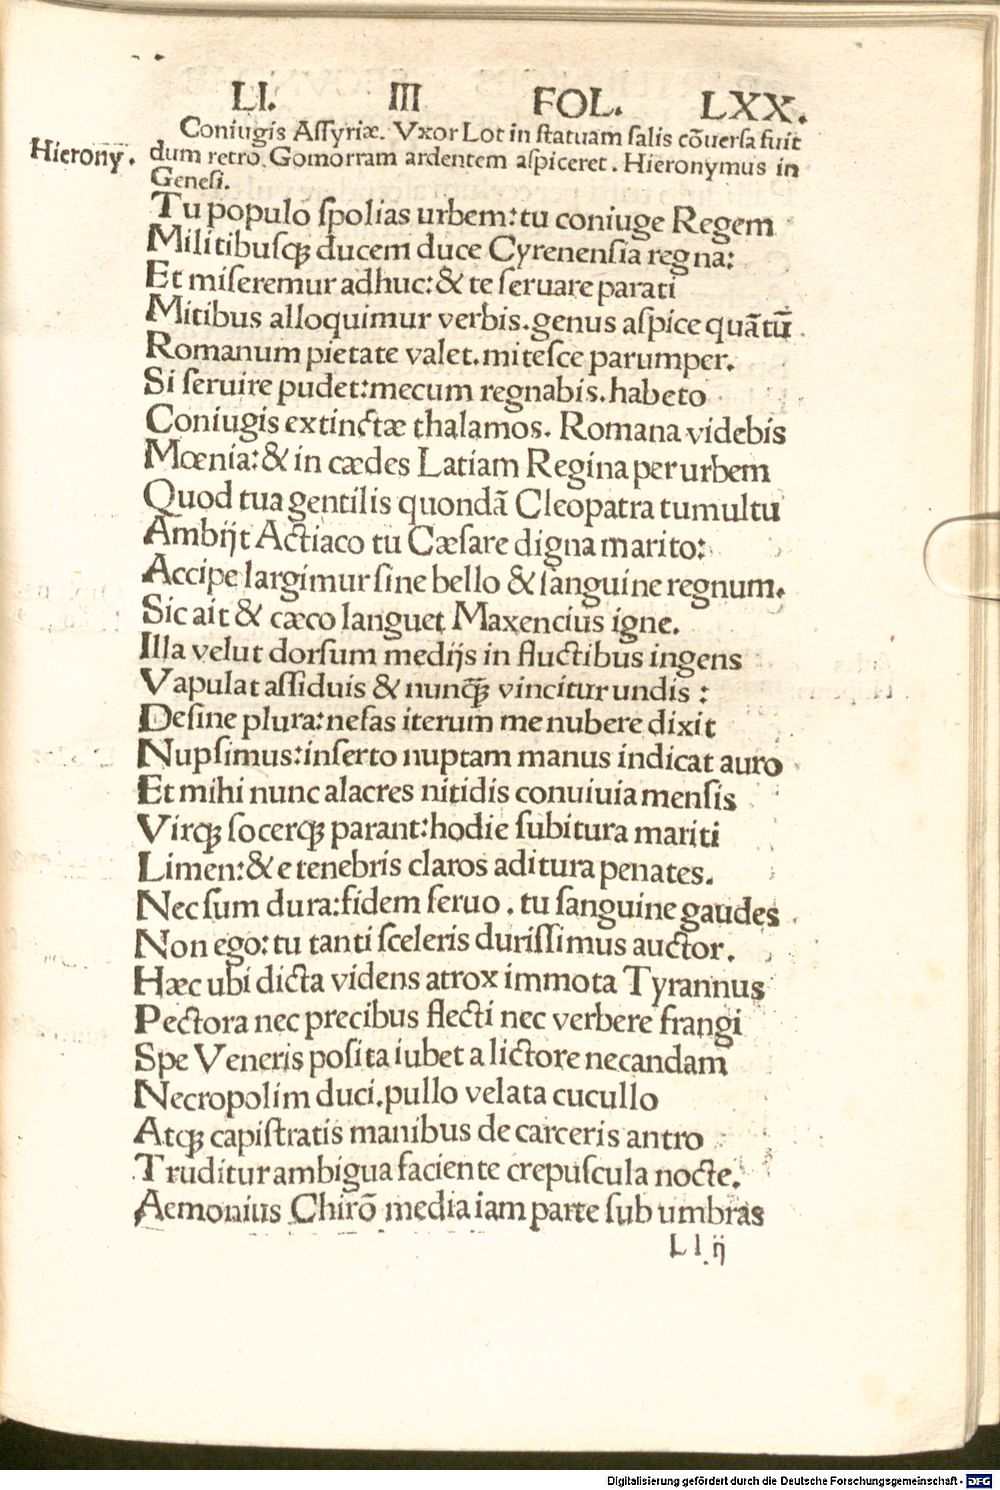 LI. III FOL. LXX.
Coniugis Aſſyriæ. Vxor Lot in ſtatuam ſalis cōuerſa fuit
Hierony. dum retro Gomorram ardentem aſpiceret. Hieronymus in
Geneſi.
Tu populo ſpolias urbem: tu coniuge Regem
Militibuſqꝫ ducem duce Cyrenenſia regna:
Et miſeremur adhuc: & te ſeruare parati
Mitibus alloquimur verbis. genus aſpice quātū
Romanum pietate valet. miteſce parumper.
Si ſeruire pudet: mecum regnabis. habeto
Coniugis extinctæ thalamos. Romana videbis
Mœnia: & in cædes Latiam Regina per urbem
Quod tua gentilis quondā Cleopatra tumultu
Ambijt Actiaco tu Cæſare digna marito:
Accipe largimur ſine bello & ſanguine regnum.
Sic ait & cæco languet Maxencius igne.
Illa velut dorſum medijs in fluctibus ingens
Vapulat aſſiduis & nunqꝫ̄ vincitur undis:
Deſine plura: nefas iterum me nubere dixit
Nupſimus: inſerto nuptam manus indicat auro
Et mihi nunc alacres nitidis conuiuia menſis
Virqꝫ ſocerqꝫ parant: hodie ſubitura mariti
Limen: & e tenebris claros aditura penates.
Nec ſum dura: fidem ſeruo. tu ſanguine gaudes
Non ego: tu tanti ſceleris duriſſimus auctor.
Hæc ubi dicta videns atrox immota Tyrannus
Pectora nec precibus flecti nec verbere frangi
Spe Veneris poſita iubet a lictore necandam
Necropolim duci. pullo velata cucullo
Atqꝫ capiſtratis manibus de carceris antro
Truditur ambigua faciente crepuſcula nocte.
Aemonius Chirō media iam parte ſub umbras
L l ij
Digitalisierung gefördert durch die Deutsche Forschungsgemeinschaft - DFG